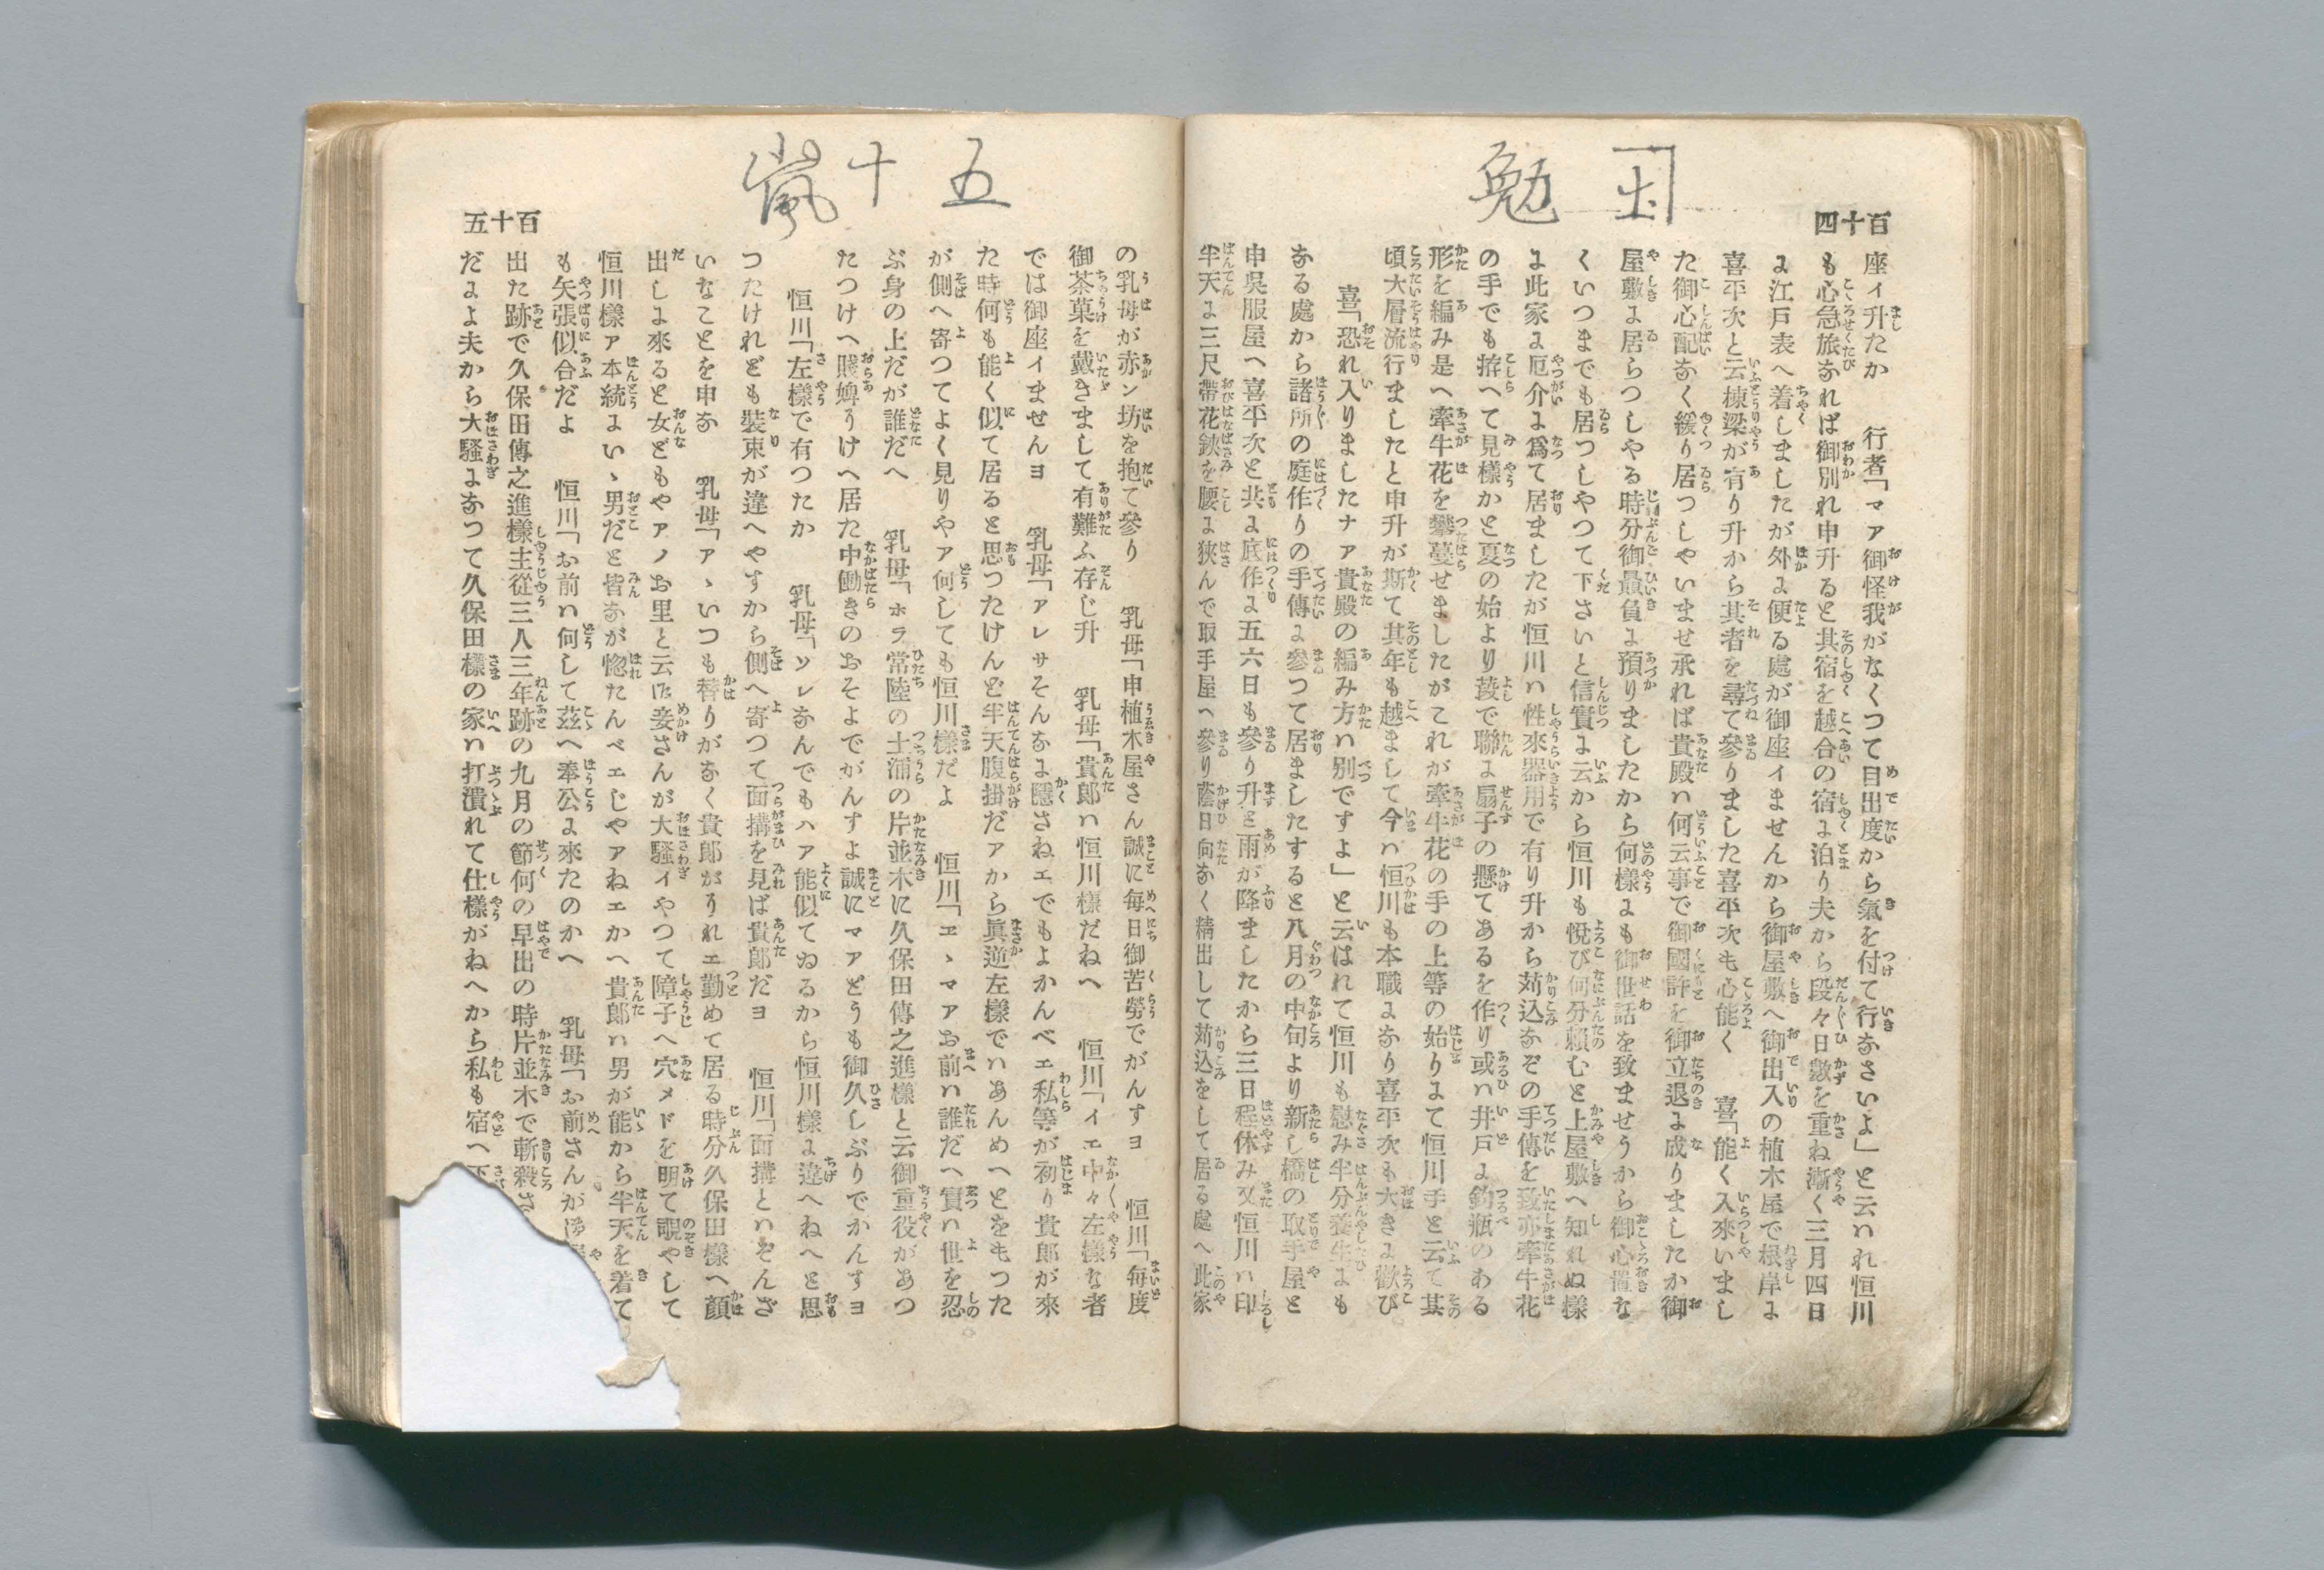 四十百
座イ升たか　行者「マア御怪我がなくつて目出度から氣を付て行なさいよ」と云れ恒川
も心急旅なれば御別れ申升ると其宿を越合の宿に泊り夫から段々日數を重ね漸く三月四日
に江戸表へ着しましたが外に便る處が御座イませんから御屋敷へ御出入の植木屋で根岸に
喜平次と云棟梁が有り升から其者を尋て參りました喜平次も心能く　喜「能く入來いまし
た御心配なく緩り居つしやいませ承れば貴殿ハ何云事で御國許を御立退に成りましたか御
屋敷に居らつしやる時分御贔負に預りましたから何樣にも御世話を致ませうから御心置な
くいつまでも居つしやつて下さいと信實に云から恒川も悦び何分頼むと上屋敷へ知れぬ樣
に此家に厄介に爲て居ましたが恒川ハ性來器用で有り升から苅込なぞの手傳を致亦牽牛花
の手でも拵へて見樣かと夏の始より葭で聯に扇子の懸てあるを作り或ハ井戸に釣瓶のある
形を編み是へ牽牛花を攀蔓せましたがこれが牽牛花の手の上等の始りまて恒川手と云て其
頃大層流行ましたと申升が斯て其年も越まして今ハ恒川も本職になり喜平次も大きに歡び
喜「恐れ入りましたナア貴殿の編み方ハ別ですよ」と云はれて恒川も慰み半分養生にも
なる處から諸所の庭作りの手傳に參つて居ましたすると八月の中旬より新し橋の取手屋と
申呉服屋へ喜平次と共に庭作に五六日も參り升と雨が降ましたから三日程休み又恒川ハ印
半天に三尺帶花鋏を腰に狹んで取手屋へ參り蔭日向なく精出して苅込をして居る處へ此家
五十百
の乳母が赤ン坊を抱て參り　乳母「申植木屋さん誠に毎日御苦勞でがんすヨ　恒川「毎度
御茶菓を戴きまして有難ふ存じ升　乳母「貴郎ハ恒川樣だねへ　恒川「イエ中々左樣な者
では御座イませんヨ　乳母「アレサそんなに隱さねエでもよかんベエ私等が初り貴郎が來
た時何も能く似て居ると思つたけんど半天腹掛だアから眞逆左樣でハあんめへとをもつた
が側へ寄つてよく見りやア何しても恒川樣だよ　恒川「ヱヽマアお前ハ誰だへ實ハ世を忍
ぶ身の上だが誰だへ　乳母「ホラ常陸の土浦の片並木に久保田傳之進樣と云御重役があつ
たつけへ賤婢うけへ居た中働きのおそよでがんすよ誠にマアどうも御久しぶりでがんすヨ
恒川「左樣で有つたか　乳母「ソレなんでもハア能似てゐるから恒川樣に違へねへと思
つたけれども裝束が違へやすから側へ寄つて面搆を見ば貴郎だヨ　恒川「面搆とハぞんざ
いなことを申な　乳母「アヽいつも替りがなく貴郎がうれエ勤めて居る時分久保田樣へ顏
出しに來ると女どもやアノお里と云た妾さんが大騷イやつて障子へ穴メドを明て覗やして
恒川樣ア本統にいゝ男だと皆なが惚たんベエじやアねエかへ貴郎ハ男が能から半天を着て
も矢張似合だよ　恒川「お前ハ何して茲へ奉公に來たのかへ　乳母「お前さんが
出た跡で久保田傳之進樣主從三人三年跡の九月の節何の早出の時片並木で斬殺さ
だよ夫から大騷になつて久保田樣の家ハ打潰れて仕樣がねへから私も宿へ
五十嵐
勉